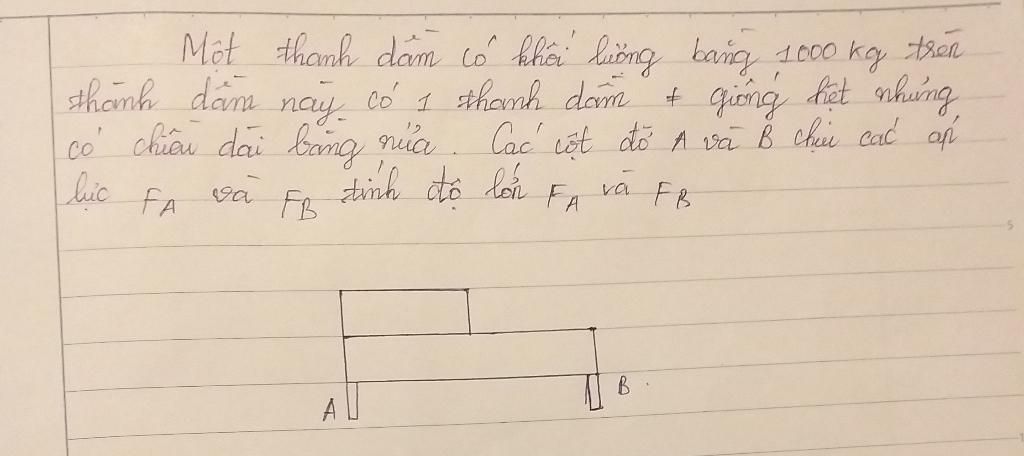 Một thanh dầm có khối lượng bằng 1000 kg trên
thành dầm này có 1 thanh dầm ≠ giống hệt nhưng
có chiều dài bằng nửa. Các cột đỡ A và B chịu các áp
lực FA và FB tính độ lớn FA và FB
A B